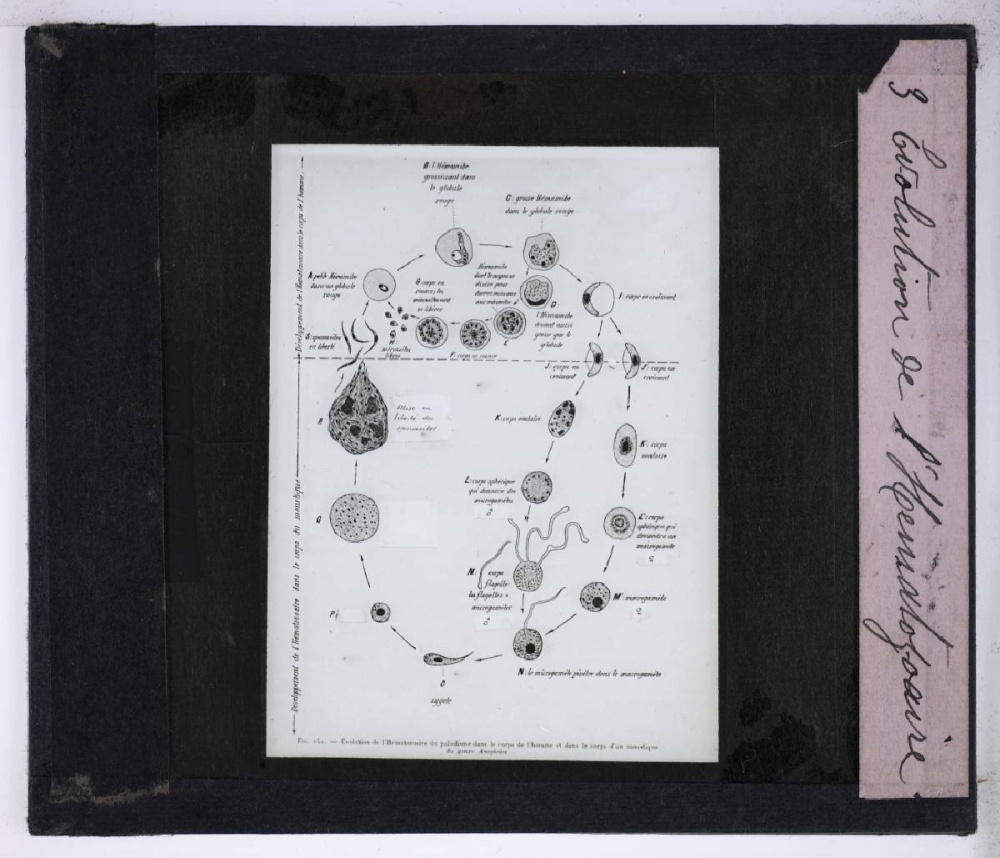 3 Evolution de l'Hématozoaire.
B: l'Hémamibe
grossissant dans
le globule
rouge
C: grosse Hémamibe
dans le globule rouge
A: petite Hémamibe
dans un globule
rouge
Hémamibe
dont le noyau se
divise pour
G: corps en
D:
I: corps en croissant
l'Hémamibe
devenu aussi
grosse que le
globule
H:
mérozoïtes
libres
E
F: corps en rosace
S: sporozoïtes
en liberté
J: corps en
croissant
J': corps en
croissant
R
Mise en
liberté des
sporozoïtes
K: corps ovalaire
K': corps
ovalaire
L: corps sphérique
qui donnera des
microgamètes
♂
L': corps
sphérique qui
deviendra un
macrogamète
♀
Q
M: corps
flagellé:
les flagelles =
microgamètes
♂
M': macrogamète
♀
P
N: le microgamète pénètre dans le macrogamète
O
zygote
Développement de l'Hématozoaire dans le corps de l'homme.
Développement de l'Hématozoaire dans le corps du moustique
— Évolution de l'Hématozoaire du paludisme dans le corps de l'homme et dans le corps d'un moustique
du genre Anopheles.